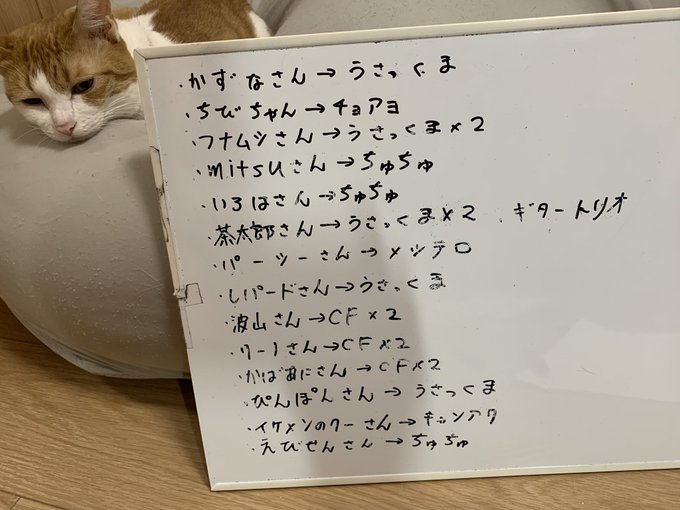 ・かずなさん→うさっくま
・ちびちゃん→チョアヨ
・フナムシさん→うさっくま×2
・mitsuさん→ちゅちゅ
・いろはさん→ちゅちゅ
・茶太郎さん→うさっくま×2 、ギタートリオ
・パーシーさん→メシテロ
・レパードさん→うさっくま
・波山さん→CF×2
・リーノさん→CF×2
・かばあにさん→CF×2
・ぴんぽんさん→うさっくま
・イケメンのクーさん→
・えびせんさん→ちゅちゅ